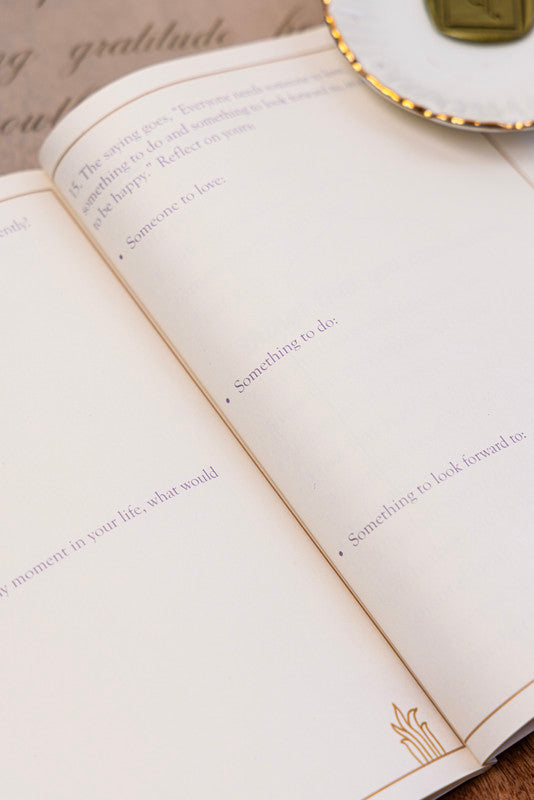 gratitude
ently?
ny moment in your life, what would
15. The saying goes, "Everyone needs someone to love,
something to do and something to look forward to,
to be happy." Reflect on yours:
• Someone to love:
• Something to do:
• Something to look forward to: